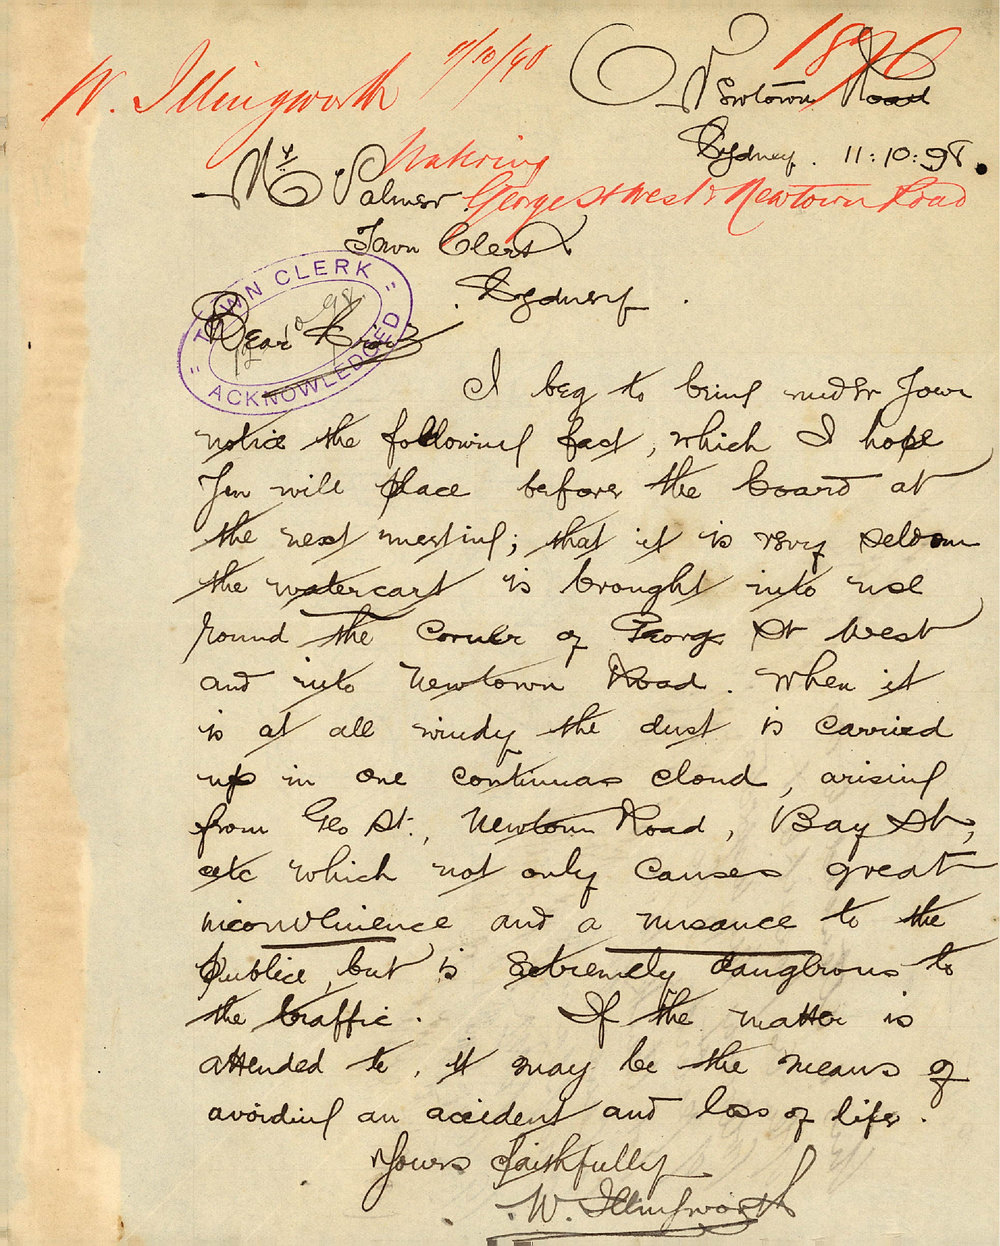 W. Illingworth 11/10/98 1896
Newtown Road
Sydney. 11:10:98.
Watering
George St West & Newtown Road
Mr Palmer.
Town Clerk
Sydney.
"TOWN CLERK"
ACKNOWLEDGED
Dear Sir
I beg to bring under your
notice the following fact, which I hope
you will place before the board at
the next meeting; that it is very seldom
the watercart is brought into use
round the corner of George St West
and into Newtown Road. When it
is at all windy the dust is carried
up in one continuas cloud, arising
from Geo St., Newtown Road, Bay St,
etc which not only causes great
inconvenience and a nusance to the
public, but is extremely dangerous to
the traffic. If the matter is
attended to, it may be the means of
avoiding an accident and loss of life.
Yours faithfully
W. Illingworth